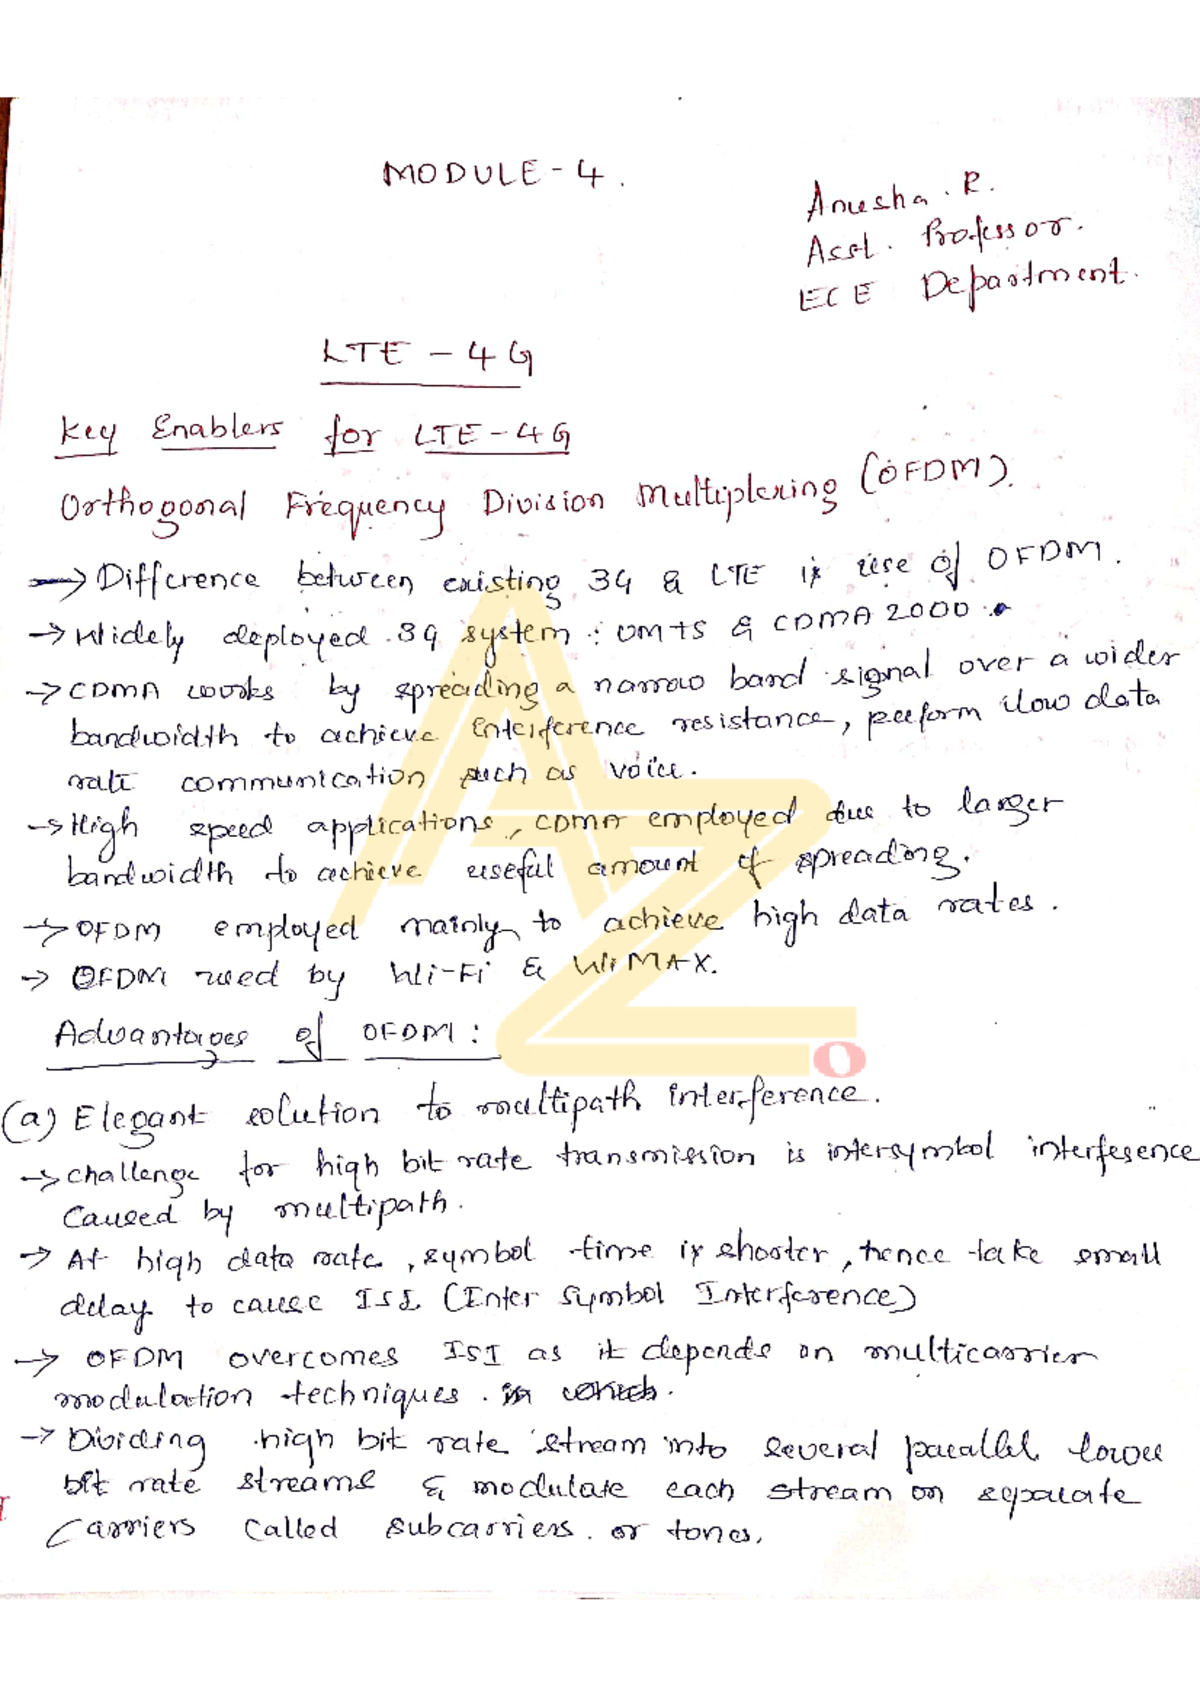 MODULE - 4.
Anusha. R.
Asst. Professor.
ECE Department.
LTE - 4G
Key Enablers for LTE - 4G
Orthogonal Frequency Division Multiplexing (OFDM).
→ Difference between existing 3G & LTE is use of OFDM.
→ Widely deployed 3G system : UMTS & CDMA 2000.
→ CDMA works by spreading a narrow band signal over a wider
bandwidth to achieve interference resistance, perform slow data
rate communication such as voice.
→ High speed applications, CDMA employed due to larger
bandwidth to achieve useful amount of spreading.
→ OFDM employed mainly to achieve high data rates.
→ OFDM used by Wi-Fi & WiMAX.
Advantages of OFDM :
(a) Elegant solution to multipath interference.
→ Challenge for high bit rate transmission is intersymbol interference
caused by multipath.
→ At high data rate, symbol time is shorter, hence take small
delay to cause ISI (Inter Symbol Interference)
→ OFDM overcomes ISI as it depends on multicarrier
modulation techniques. in which.
→ Dividing high bit rate stream into several parallel lower
bit rate streams & modulate each stream on separate
Carriers called subcarriers. or tones.
AZ
O